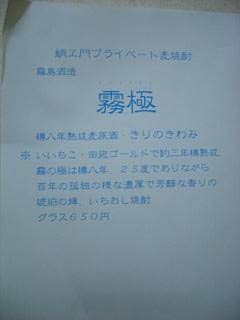 納ヱ門プライベート麦焼酎
霧島酒造
霧極
樽八年熟成麦原酒・きりのきわみ
※ いいちこ・田宛ゴールドで約三年樽熟成
霧の極は樽八年、25度でありながら
百年の孤独の様な濃厚で芳醇な香りの
琥珀の輝、いちおし焼酎
グラス650円